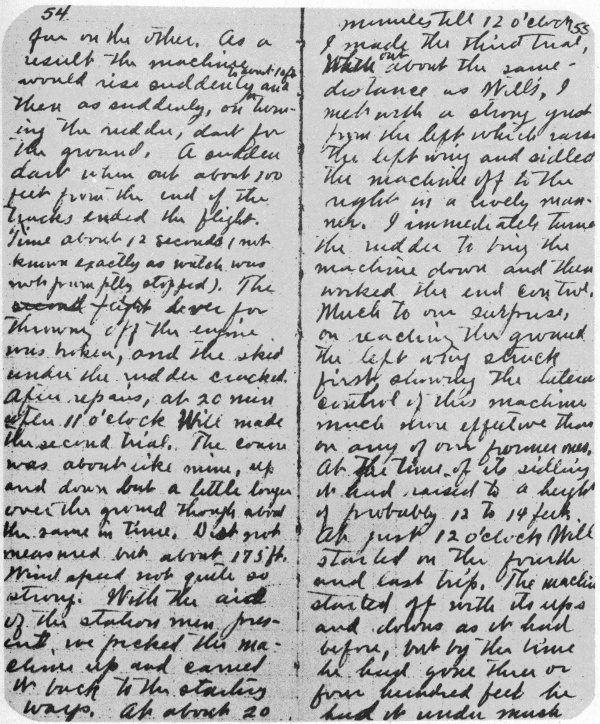 54
far on the other. As a
result the machine
would rise suddenly to about 10 ft. and
then as suddenly, on turn-
ing the rudder, dart for
the ground. A sudden
dart when out about 100
feet from the end of the
tracks ended the flight.
Time about 12 seconds (not
known exactly as watch was
not promptly stopped). The
flight lever for
throwing off the engine
was broken, and the skid
under the rudder cracked.
After repairs, at 20 min
after 11 o'clock Will made
the second trial. The course
was about like mine, up
and down but a little longer
over the ground though about
the same in time. Dist not
measured but about 175 ft.
Wind speed not quite so
strong. With the aid
of the station men pres-
ent, we picked the ma-
chine up and carried
it back to the starting
ways. At about 20
55
minutes till 12 o'clock
I made the third trial.
When out about the same
distance as Will's, I
met with a strong gust
from the left which raised
the left wing and sidled
the machine off to the
right in a lively man-
ner. I immediately turned
the rudder to bring the
machine down and then
worked the end control.
Much to our surprise,
on reaching the ground
the left wing struck
first, showing the lateral
control of this machine
much more effective than
on any of our former ones.
At the time of its sidling
it had raised to a height
of probably 12 to 14 feet.
At just 12 o'clock Will
started on the fourth
and last trip. The machine
started off with its ups
and downs as it had
before, but by the time
he had gone three or
four hundred feet he
had it under much